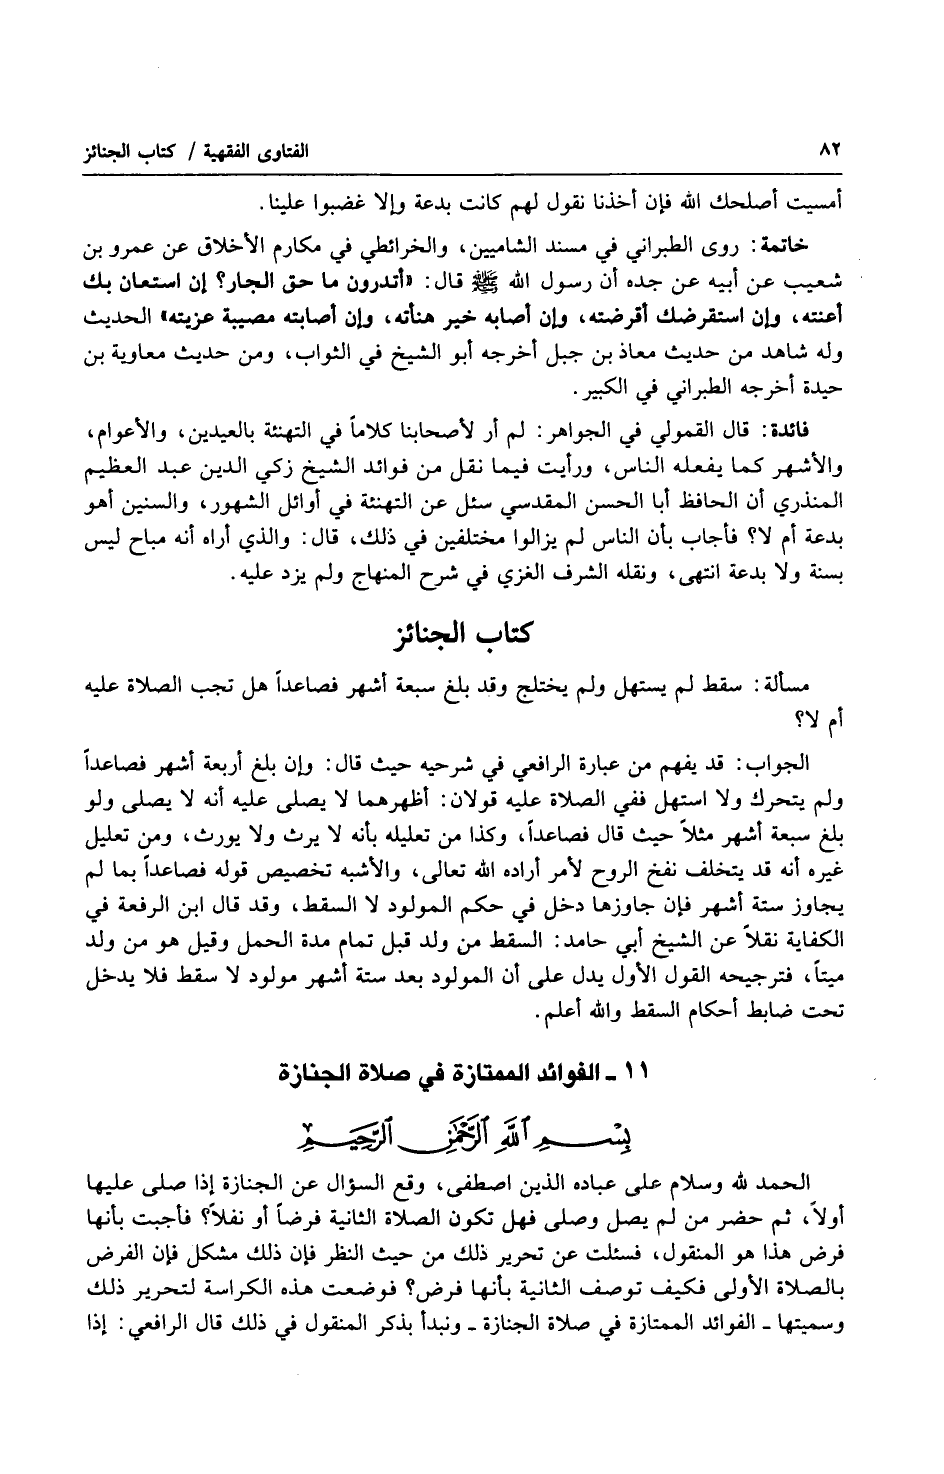 ٨٢ الفتاوى الفقهية / كتاب الجنائز
أمسيت أصلحك الله فإن أخذنا نقول لهم كانت بدعة وإلا غضبوا علينا.
خاتمة: روى الطبراني في مسند الشاميين، والخرائطي في مكارم الأخلاق عن عمرو بن
شعيب عن أبيه عن جده أن رسول الله ﷺ قال: «أتدرون ما حق الجار؟ إن استعان بك
أعنته، وإن استقرضك أقرضته، وإن أصابه خير هنأته، وإن أصابته مصيبة عزيته» الحديث
وله شاهد من حديث معاذ بن جبل أخرجه أبو الشيخ في الثواب، ومن حديث معاوية بن
حيدة أخرجه الطبراني في الكبير.
فائدة: قال القمولي في الجواهر: لم أر لأصحابنا كلاماً في التهنئة بالعيدين، والأعوام،
والأشهر كما يفعله الناس، ورأيت فيما نقل من فوائد الشيخ زكي الدين عبد العظيم
المنذري أن الحافظ أبا الحسن المقدسي سئل عن التهنئة في أوائل الشهور، والسنين أهو
بدعة أم لا؟ فأجاب بأن الناس لم يزالوا مختلفين في ذلك، قال: والذي أراه أنه مباح ليس
بسنة ولا بدعة انتهى، ونقله الشرف الغزي في شرح المنهاج ولم يزد عليه.
كتاب الجنائز
مسألة: سقط لم يستهل ولم يختلج وقد بلغ سبعة أشهر فصاعداً هل تجب الصلاة عليه
أم لا؟
الجواب: قد يفهم من عبارة الرافعي في شرحيه حيث قال: وإن بلغ أربعة أشهر فصاعداً
ولم يتحرك ولا استهل ففي الصلاة عليه قولان: أظهرهما لا يصلى عليه أنه لا يصلى ولو
بلغ سبعة أشهر مثلاً حيث قال فصاعداً، وكذا من تعليله بأنه لا يرث ولا يورث، ومن تعليل
غيره أنه قد يتخلف نفخ الروح لأمر أراده الله تعالى، والأشبه تخصيص قوله فصاعداً بما لم
يجاوز ستة أشهر فإن جاوزها دخل في حكم المولود لا السقط، وقد قال ابن الرفعة في
الكفاية نقلاً عن الشيخ أبي حامد: السقط من ولد قبل تمام مدة الحمل وقيل هو من ولد
ميتاً، فترجيحه القول الأول يدل على أن المولود بعد ستة أشهر مولود لا سقط فلا يدخل
تحت ضابط أحكام السقط والله أعلم.
١١ ـ الفوائد الممتازة في صلاة الجنازة
بِسْمِ ٱللَّهِ ٱلرَّحْمَٰنِ ٱلرَّحِيمِ
الحمد لله وسلام على عباده الذين اصطفى، وقع السؤال عن الجنازة إذا صلى عليها
أولاً، ثم حضر من لم يصل وصلى فهل تكون الصلاة الثانية فرضاً أو نفلاً؟ فأجبت بأنها
فرض هذا هو المنقول، فسئلت عن تحرير ذلك من حيث النظر فإن ذلك مشكل فإن الفرض
بالصلاة الأولى فكيف توصف الثانية بأنها فرض؟ فوضعت هذه الكراسة لتحرير ذلك
وسميتها ـ الفوائد الممتازة في صلاة الجنازة ـ ونبدأ بذكر المنقول في ذلك قال الرافعي: إذا